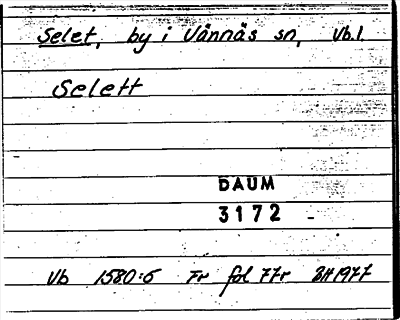 Selet, by i Vännäs sn, Vb.l
Selett
DAUM
3172
Vb 1580:6 Fr fol 77r BH 1977